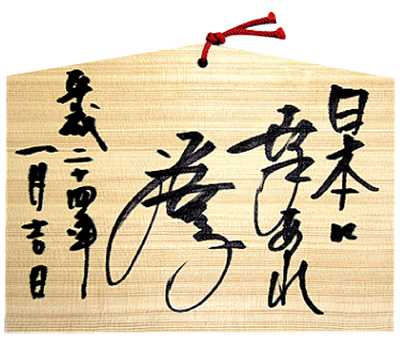 日本に
幸あれ
平成二十四年
一月吉日